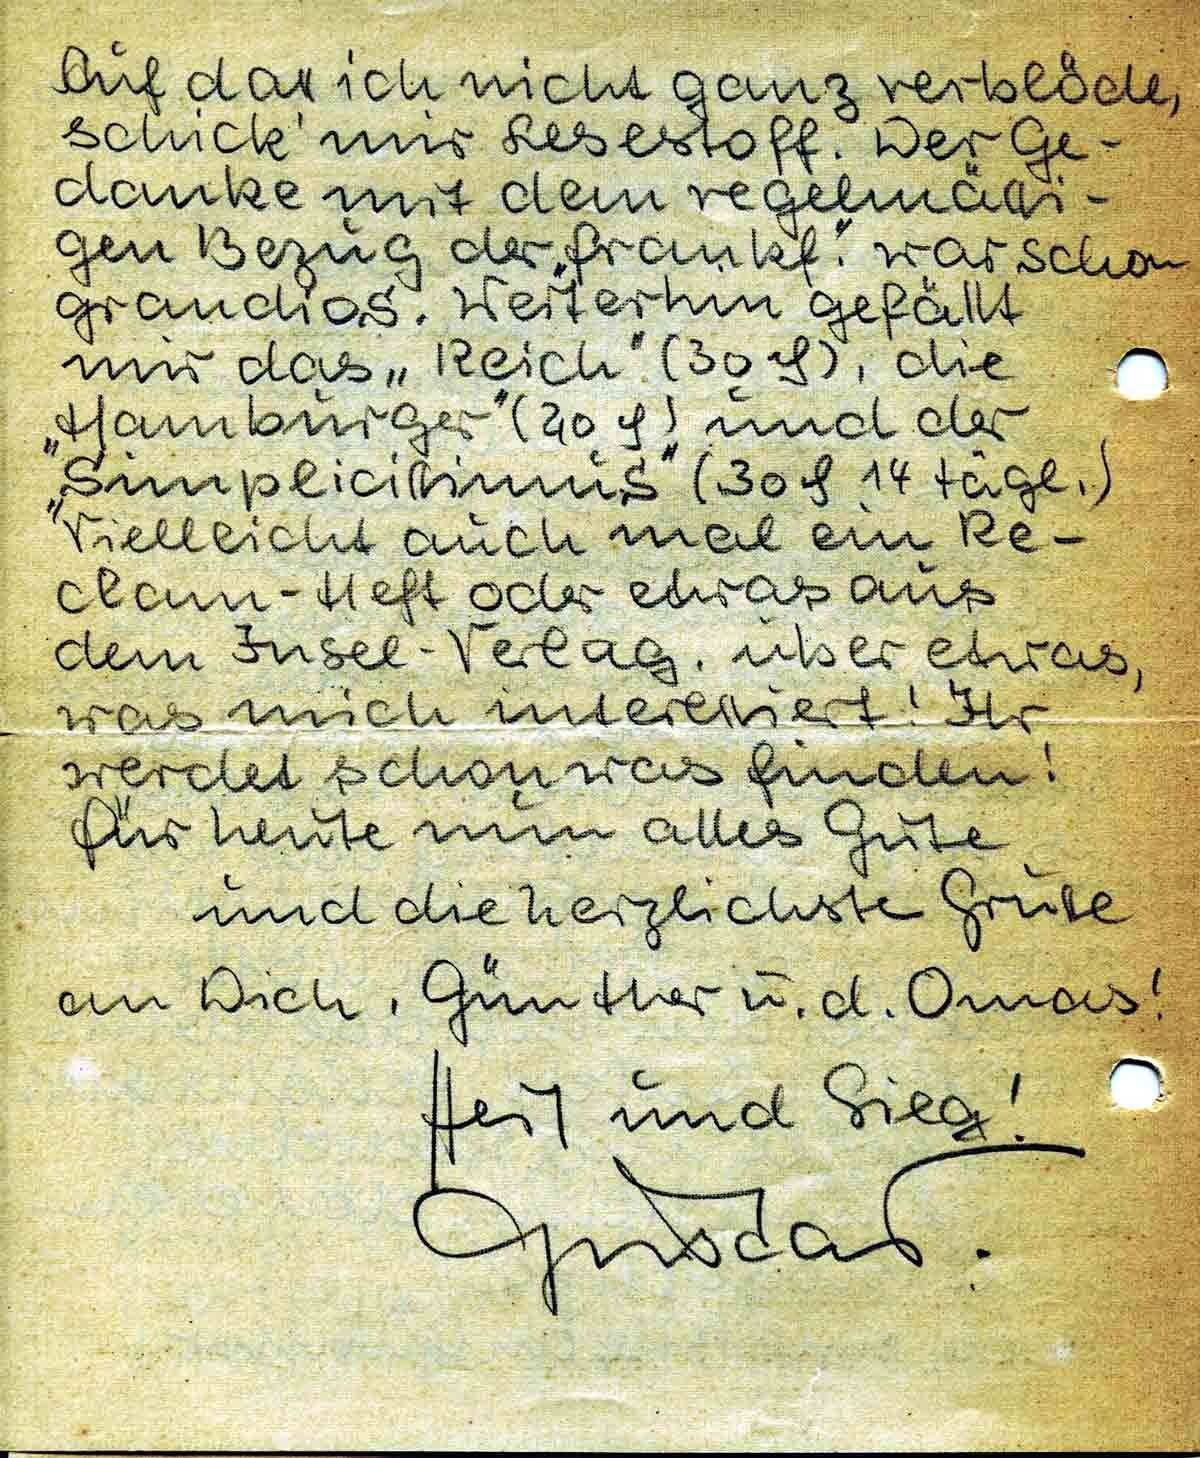 Auf daß ich nicht ganz verblöde,
schick' mir Lesestoff. Der Ge-
danke mit dem regelmäßi-
gen Bezug der „Frankf." war schon
grandios. Weiterhin gefällt
mir das „Reich" (30 ₰), die
„Hamburger" (20 ₰) und der
„Simplicissimus" (30 ₰ 14 tägl.)
Vielleicht auch mal ein Re-
clam-Heft oder etwas aus
dem Insel-Verlag, über etwas,
was mich interessiert! Ihr
werdet schon was finden!
Für heute nun alles Gute
und die herzlichste Grüße
an Dich, Günther u. d. Omas!
Heil und Sieg!
Gustav.